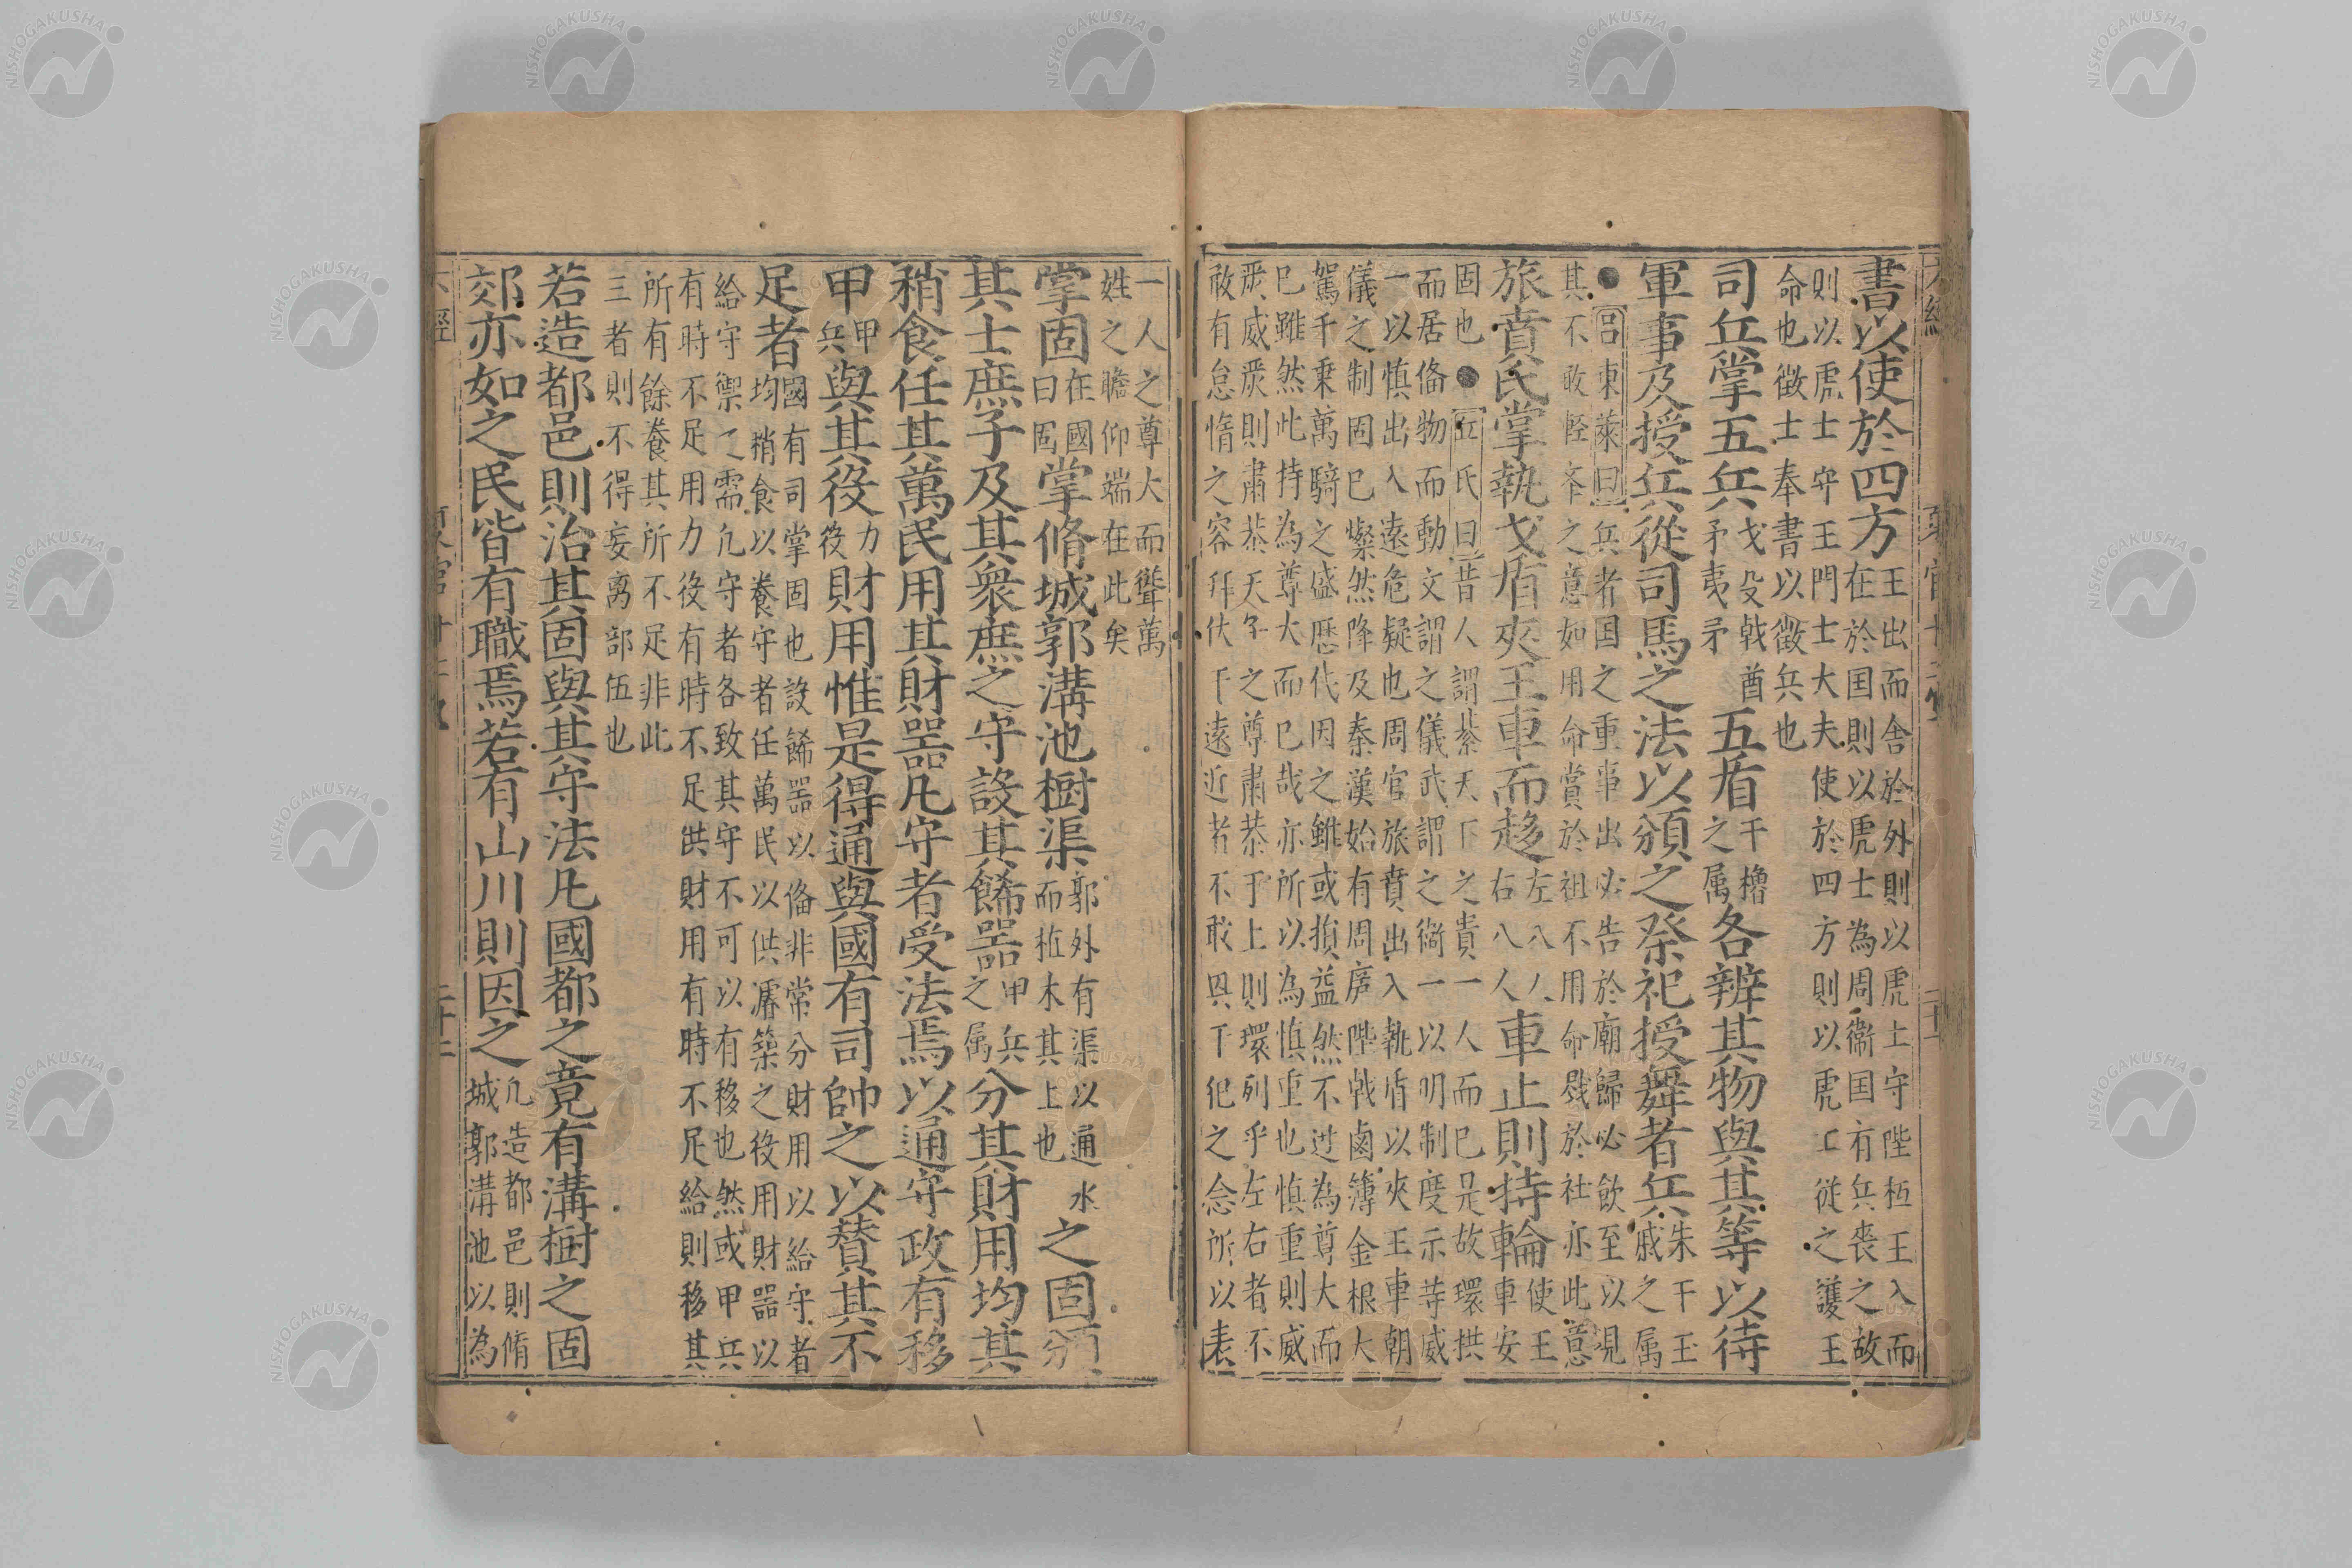 書以使於四方王出而舍於外則以虎士守陛枑王入而在於国則以虎士為周衛国有兵喪之故
則以虎士守王門士大夫使於四方則以虎士從之護王
命也徵士奉書以徵兵也
司兵掌五兵戈殳戟酋矛夷矛五盾干櫓之属各辨其物與其等以待
軍事及授兵從司馬之法以頒之祭祀授舞者兵朱干玉戚之属
●呂東萊曰兵者国之重事出必告於廟歸必飲至以見
其不敢輕卒之意如用命賞於祖不用命戮於社亦此意
旅賁氏掌執戈盾夾王車而趍左八人右八人車止則持輪使王車安
固也●丘氏曰昔人謂綦天下之貴一人而已是故環拱
而居俻物而動文謂之儀武謂之衛一以明制度示等威
一以慎出入遠危疑也周官旅賁出入執盾以夾王車朝
儀之制固已燦然降及秦漢始有周廬陛戟鹵簿金根大
駕千乗萬騎之盛歴代因之雖或損益然不过為尊大而
已雖然此持為尊大而已哉亦所以為慎重也慎重則威
嚴威嚴則肅恭天子之尊肅恭于上則環列乎左右者不
敢有怠惰之容拜伏于遠近者不敢興干犯之念所以表
一人之尊大而聳萬
姓之瞻仰端在此矣
掌固在國曰固掌脩城郭溝池樹渠郭外有渠以通水而植木其上也之固頒
其士庶子及其衆庶之守設其餙噐甲兵之属分其財用均其
稍食任其萬民用其財噐凡守者受法焉以通守政有移
甲甲兵與其役力役財用惟是得通與國有司帥之以賛其不
足者國有司掌固也設餙噐以俻非常分財用以給守者均稍食以養守者任萬民以供濬築之役用財噐以
給守禦之需凢守者各致其守不可以有移也然或甲兵
有時不足用力役有時不足供財用有時不足給則移其
所有餘養其所不足非此
三者則不得妄离部伍也
若造都邑則治其固與其守法凡國都之竟有溝樹之固
郊亦如之民皆有職焉若有山川則因之凢造都邑則脩城郭溝池以為